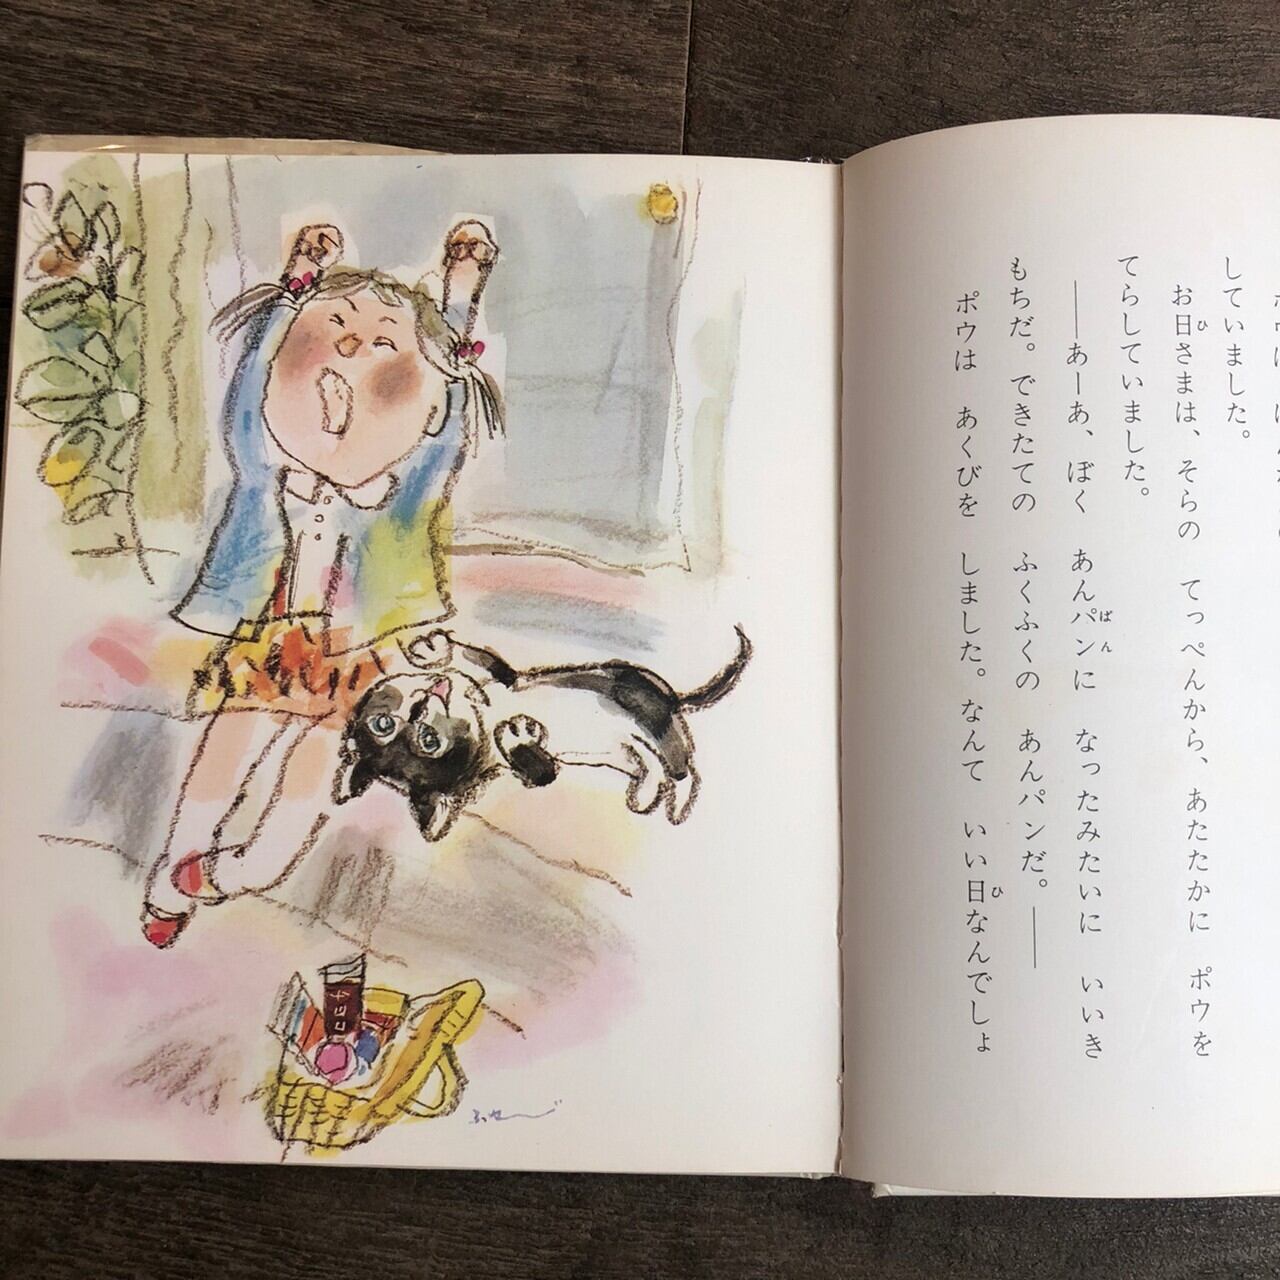 していました。
お日さまは、そらの てっぺんから、あたたかに ポウを
てらしていました。
――あーあ、ぼく あんパンに なったみたいに いいき
もちだ。できたての ふくふくの あんパンだ。――
ポウは あくびを しました。なんて いい日なんでしょ